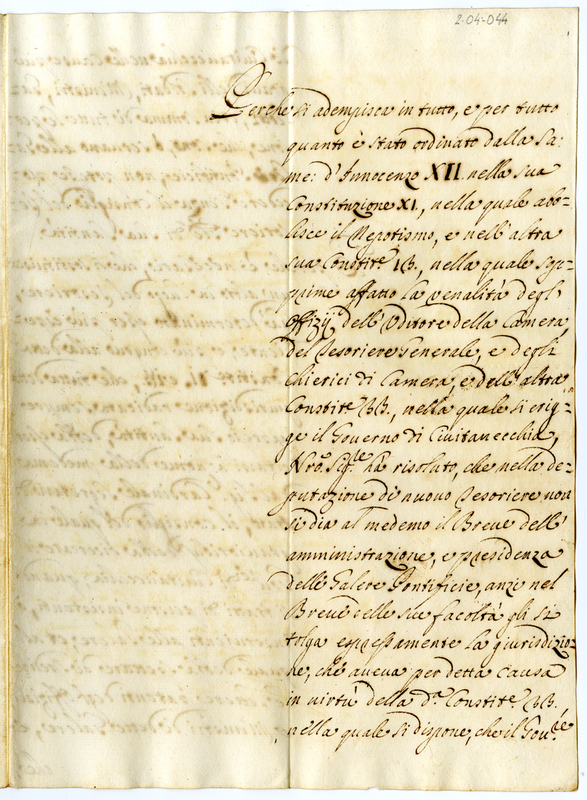 2-04-044
Perche si adempisca in tutto, e per tutto
quanto è stato ordinato dalla Sa:
me: d'Innocenzo XII. nella sua
Constituzione XI., nella quale abo-
lisce il Nepotismo, e nell'altra
sua Constit.e 1B., nella quale sop-
prime affatto la venalità degl'
offizij dell'Uditore della Camera,
del Tesoriere Generale, e degli
Chierici di Camera, e dell'altra
Constit.e BB., nella quale si erig-
ge il Governo di Civitavecchia,
Nro. Sig.re hà risoluto, che nella de-
putazione di nuovo Tesoriere non
si dia al medemo il Breve dell'
amministrazione, e presidenza
delle Galere Pontificie, anzi nel
Breve delle sue facoltà gli si
tolga espressamente la giurisdizio-
ne, che aveva per detta causa
in virtù della d.a Constit.e BB.
nella quale si dispone, che il Gov.re